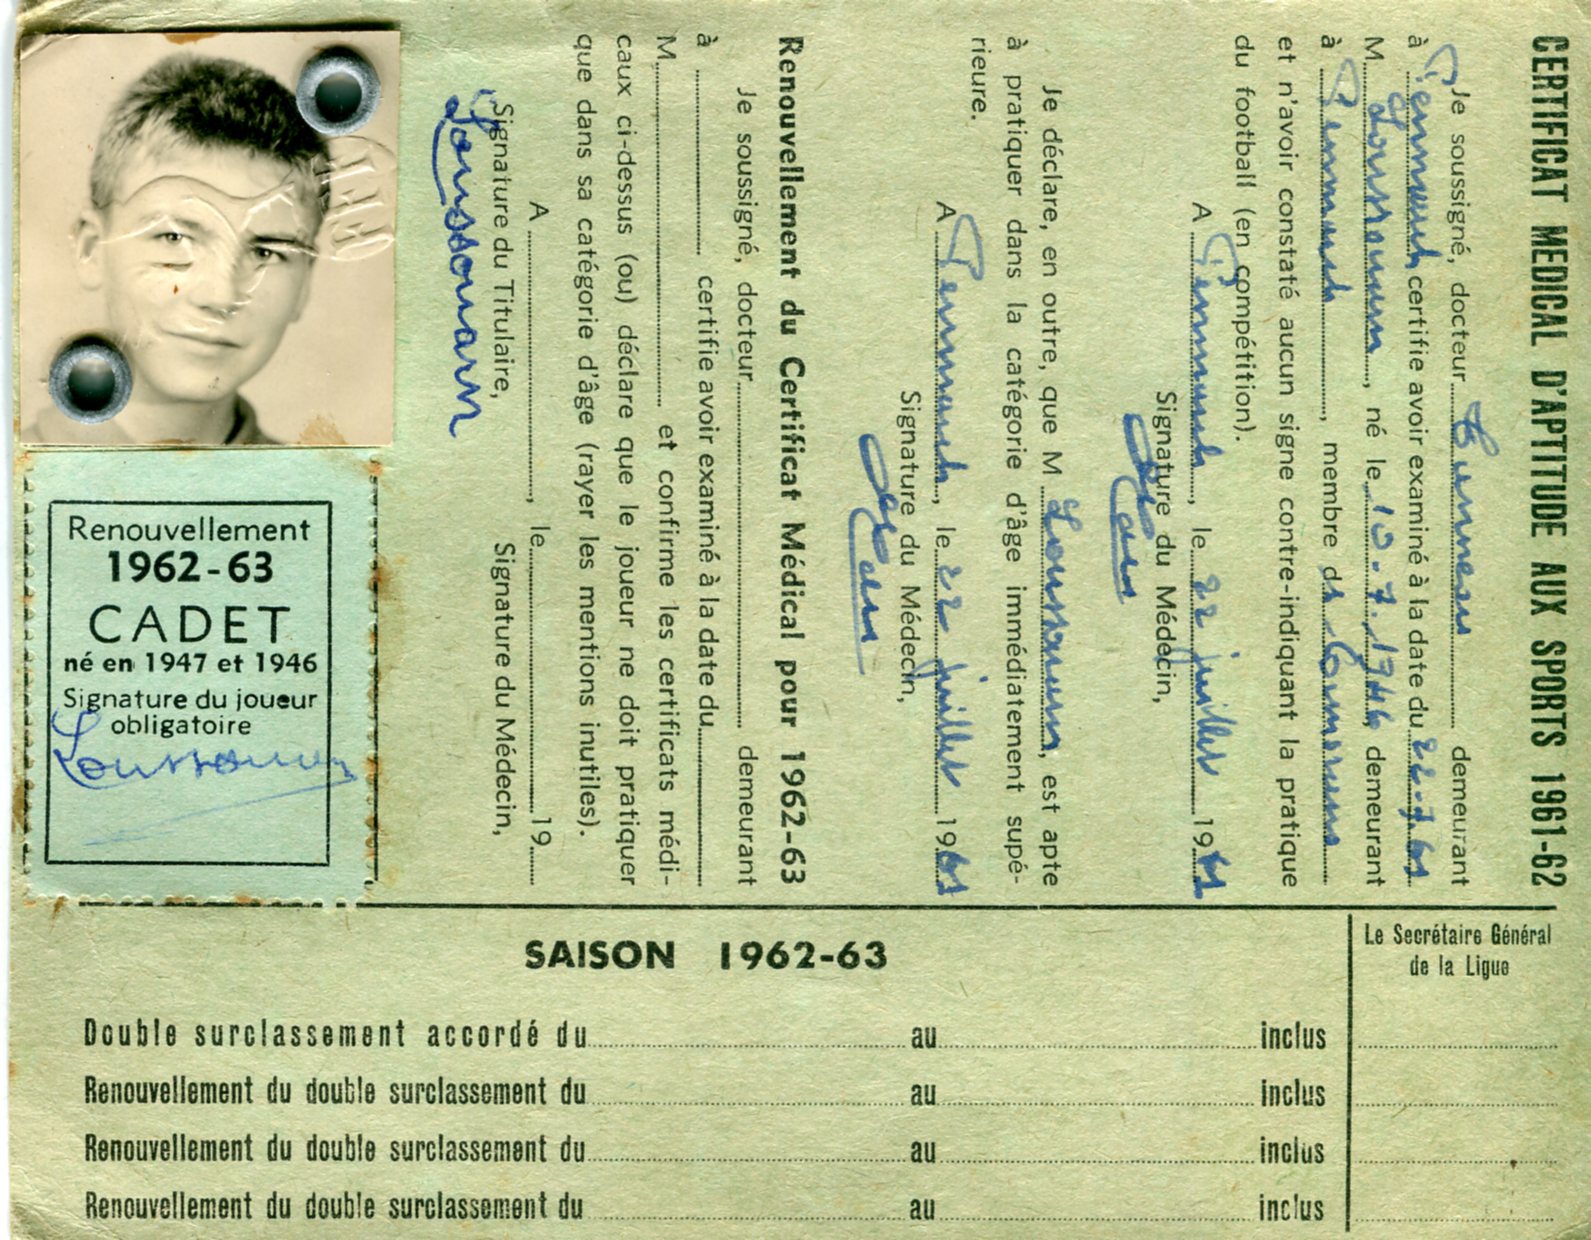 CERTIFICAT MEDICAL D'APTITUDE AUX SPORTS 1961-62
Je soussigné, docteur demeurant
à certifie avoir examiné à la date du 22.7.61
M. Loussouarn, né le 10.7.1946 demeurant
à Penmarch, membre de
et n'avoir constaté aucun signe contre-indiquant la pratique
du football (en compétition).
A Penmarch, le 22 juillet 1961
Signature du Médecin,
Je déclare, en outre, que M Loussouarn, est apte
à pratiquer dans la catégorie d'âge immédiatement supé-
rieure.
A Penmarch, le 22 juillet 1961
Signature du Médecin,
Renouvellement du Certificat Médical pour 1962-63
Je soussigné, docteur demeurant
à certifie avoir examiné à la date du
M. et confirme les certificats médi-
caux ci-dessus (ou) déclare que le joueur ne doit pratiquer
que dans sa catégorie d'âge (rayer les mentions inutiles).
A , le 19
Signature du Titulaire, Signature du Médecin,
Loussouarn
Renouvellement
1962-63
CADET
né en 1947 et 1946
Signature du joueur
obligatoire
Loussouarn
SAISON 1962-63
Le Secrétaire Général
de la Ligue
Double surclassement accordé du au inclus
Renouvellement du double surclassement du au inclus
Renouvellement du double surclassement du au inclus
Renouvellement du double surclassement du au inclus